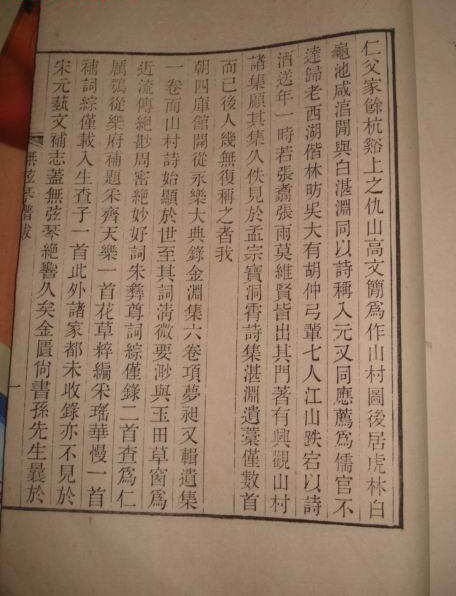 仁父家餘杭谿上之仇山高文簡爲作山村圖後居虎林白
龜池咸淳間與白湛淵同以詩稱入元又同應薦爲儒官不
達歸老西湖偕林昉吳大有胡仲弓輩七人江山跌宕以詩
酒送年一時若張翥張雨莫維賢皆出其門著有興觀山村
諸集顧其集久佚見於孟宗寶洞霄詩集湛淵遺藁僅數首
而已後人幾無復稱之者我
朝四庫館開從永樂大典錄金淵集六卷項夢昶又輯遺集
一卷而山村詩始顯於世至其詞清微要渺與玉田草窗爲
近流傳絶尠周密絶妙好詞朱彝尊詞綜僅錄二首查爲仁
厲鶚從樂府補題采齊天樂一首花草粹編采瑤華慢一首
補詞綜僅載入生查子一首此外諸家都未收錄亦不見於
宋元藝文補志蓋無弦琴絶響久矣金匱尙書孫先生曩於
無弦琴譜跋
一